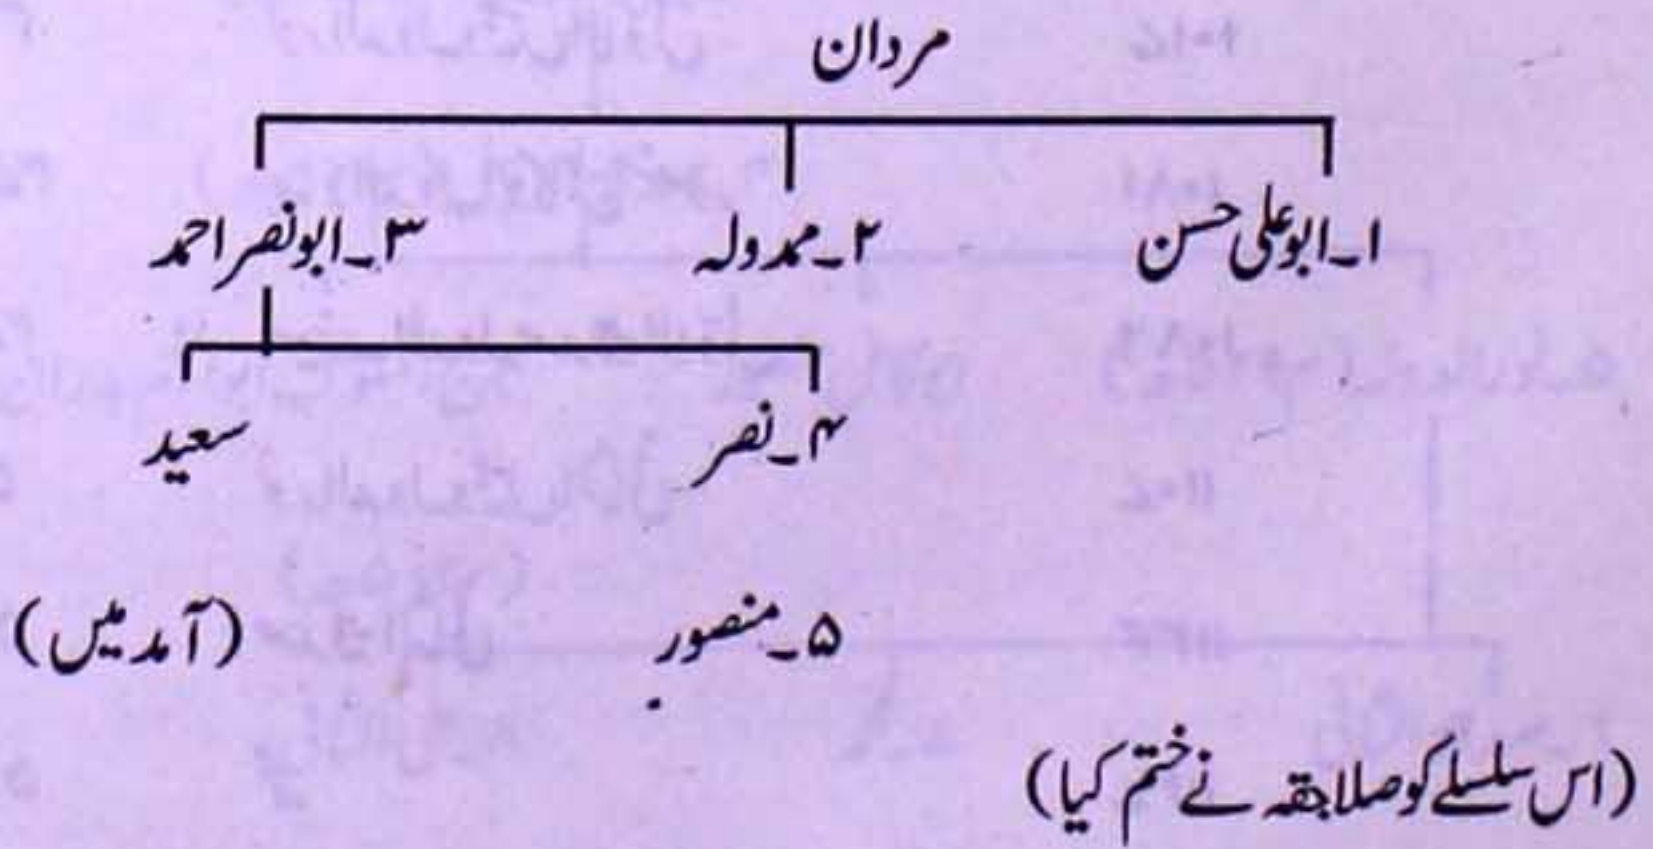 مردان
۱۔ابوعلی حسن ۲۔ممدولہ ۳۔ابونصر احمد
۴۔نصر سعید
۵۔منصور (آمد میں)
(اس سلسلے کو صلاجقہ نے ختم کیا)